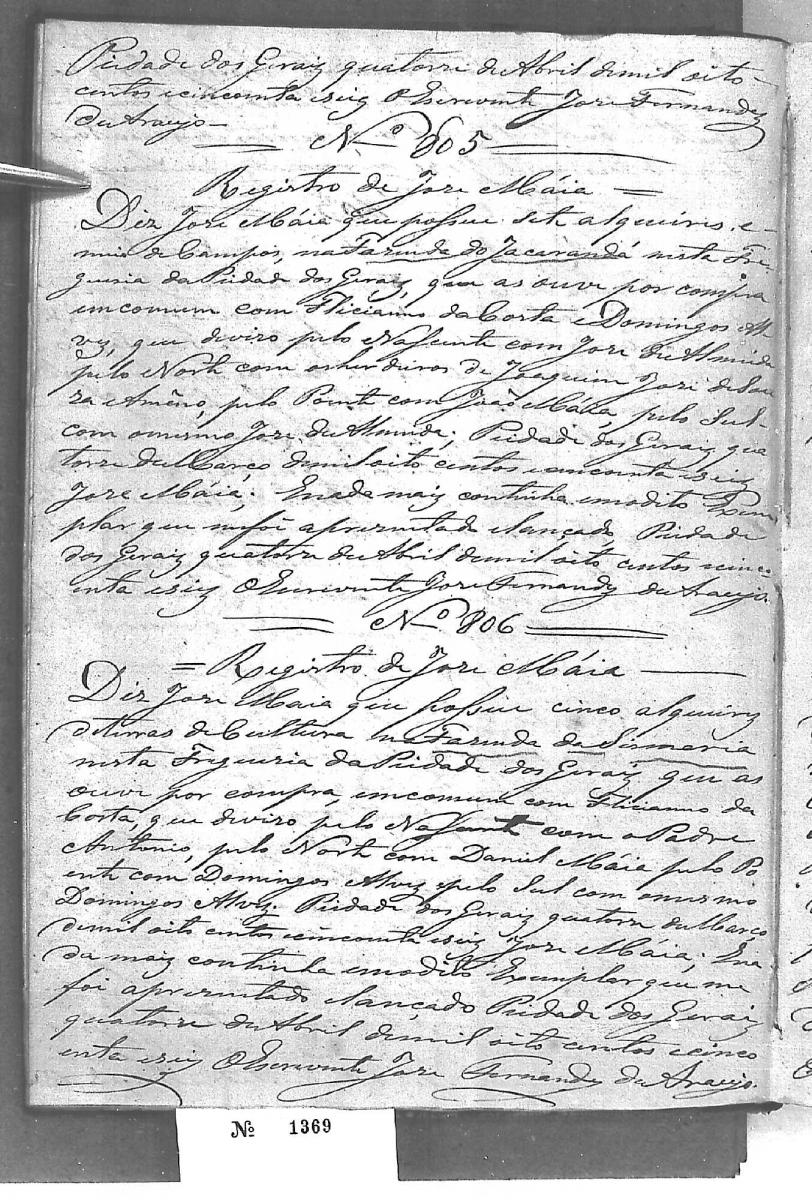 Piedade dos Geraiz quatorze de Abril de mil oito
centos e cincoenta e seiz O Escrevente Jose Fernandez
de Araujo
Nº 805
Registro de Jose Máia
Diz Jose Máia que possue sete alqueires e
meia de Campos, na Fazenda do Jacarandá nesta Fre
guezia da Piedade dos Geraiz, que as ouve por compra
em comum com Feliciano da Costa e Domingos Al
vez, que divizo pelo Nascente com Joze de Almeida
pelo Norte com os herdeiros de Joaquim Joze de Sou
za e Ameno, pelo Poente com João Máia, pelo Sul
com o mesmo Joze de Almeida; Piedade dos Geraiz qua
torze de Março de mil oito centos e cincoenta e seiz
Joze Máia; E nada maiz continha em o dito Exem
plar que me foi aprezentado e lançado Piedade
dos Geraiz quatorze de Abril de mil oito centos e cinco
enta e seiz O Escrevente Joze Fernandz de Araujo.
Nº 806
Registro de Joze Máia
Diz Joze Maia que possue cinco alqueirz
de terras de Cultura na Fazenda da Sismaria
nesta Freguezia da Piedade dos Geraiz que as
ouve por compra, em comum com Feliciano da
Costa, que divizo pelo Nascente com o Padre
Antonio, pelo Norte com Daniel Máia pelo Po
ente com Domingos Alvez e pelo Sul com o mesmo
Domingos Alvez. Piedade dos Geraiz quatorze de Março
de mil oito centos e cincoenta e seiz Joze Máia; E na
da maiz continha em o dito Exemplar que me
foi aprezentado e lançado Piedade dos Geraiz
quatorze de Abril de mil oito centos e cinco
enta e seiz O Escrevente Joze Fernandz de Araujo.
Nº 1369